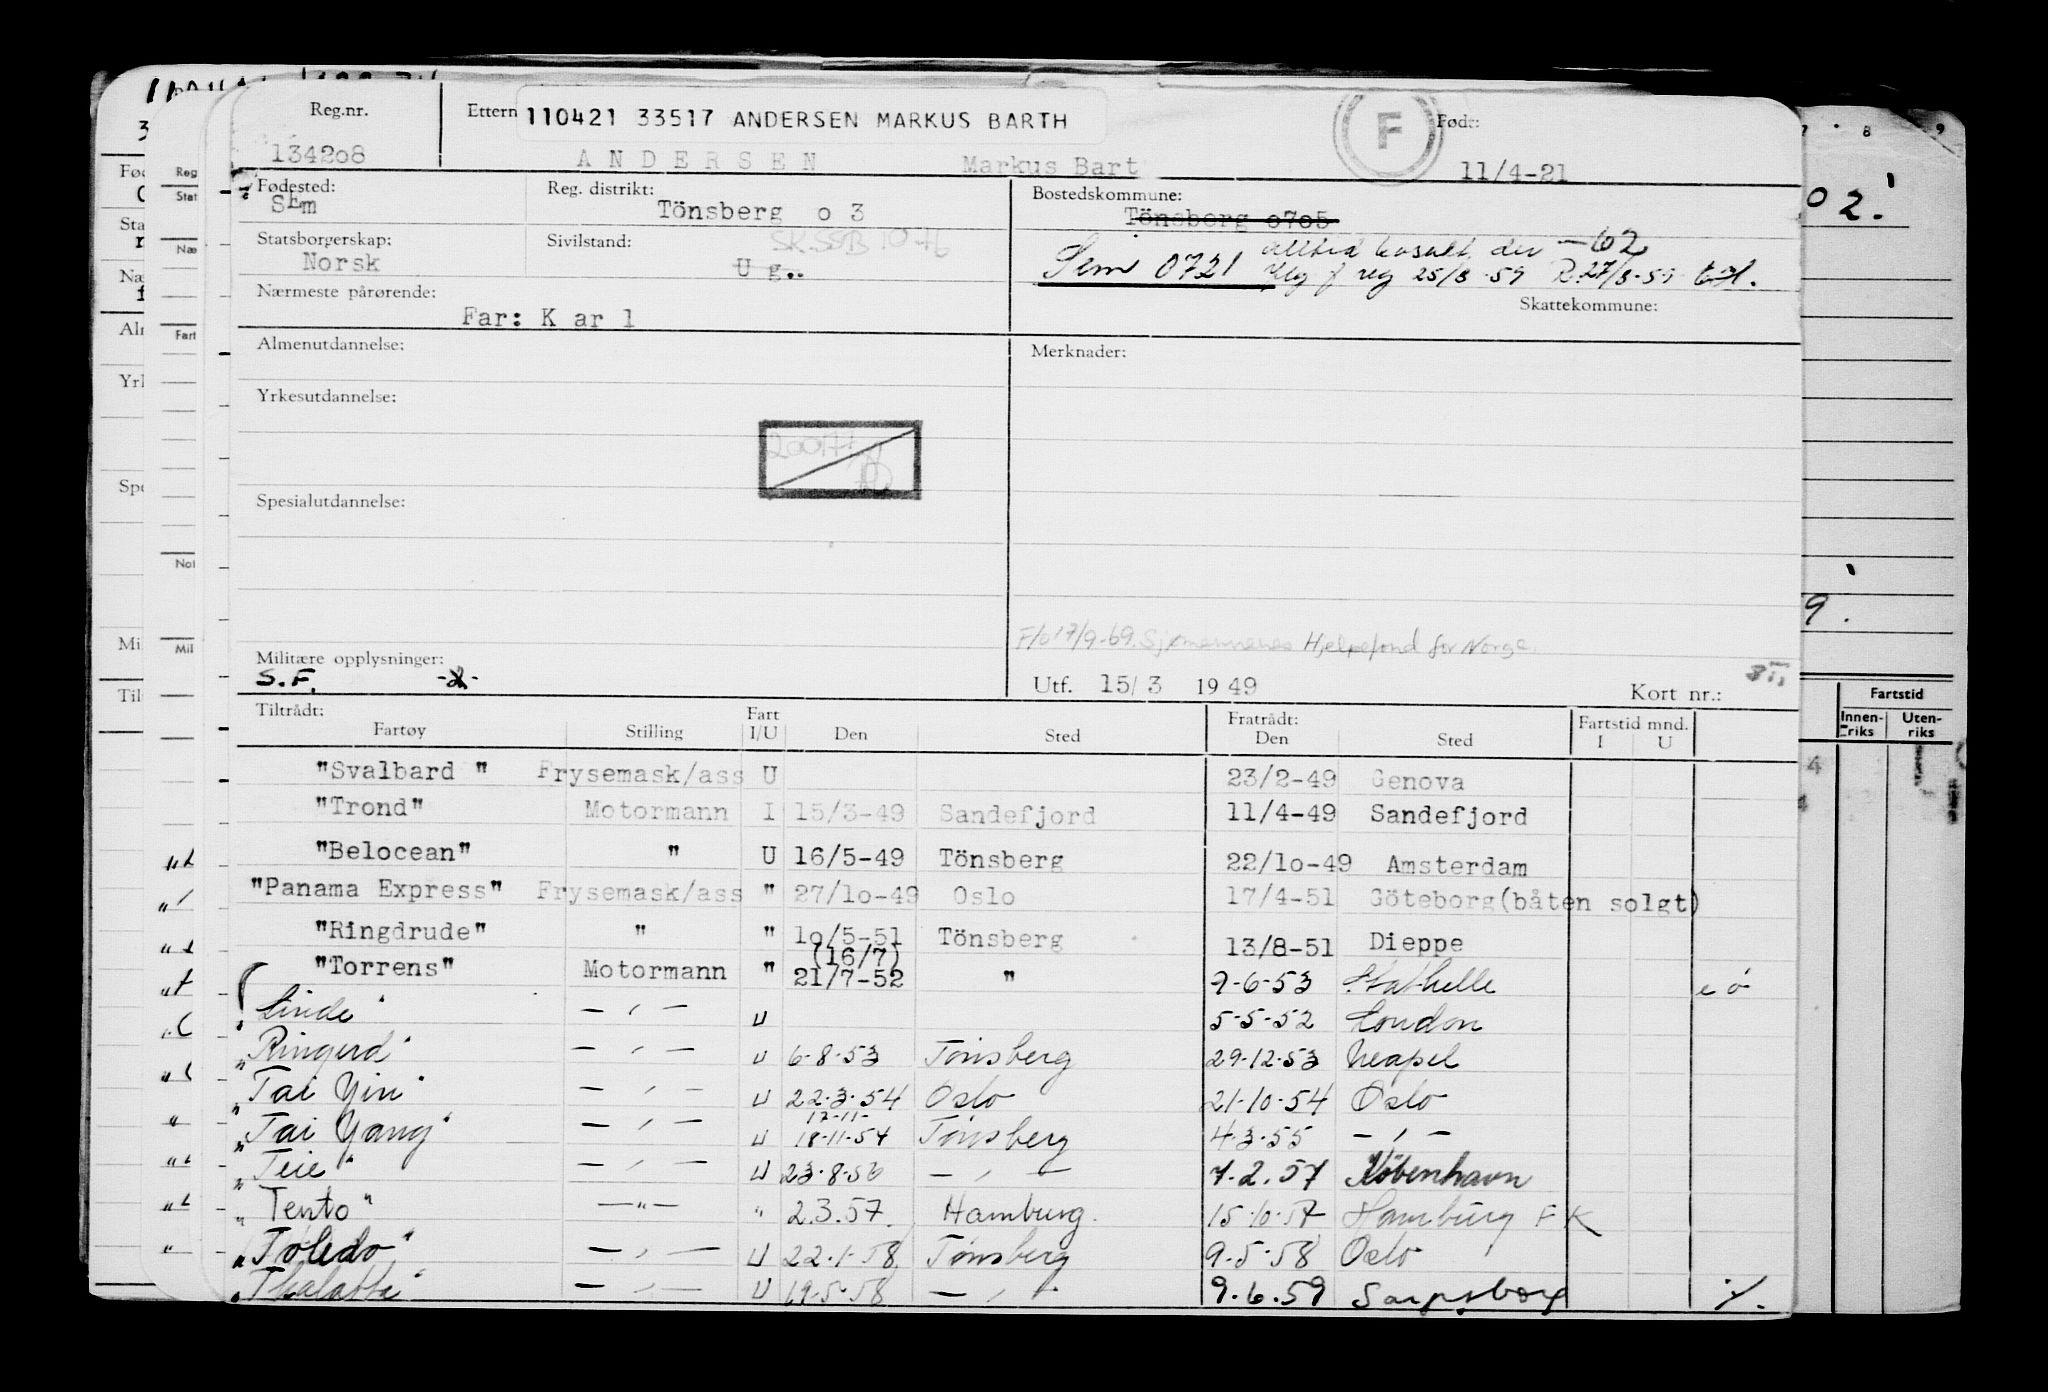 Reg.nr. Ettern 110421 33517 ANDERSEN MARKUS BARTH F Født:
134208 ANDERSEN Markus Bart 11/4-21
Fødested: Reg. distrikt: Bostedskommune:
SEm Tönsberg o 3 Tönsberg o7o5
Statsborgerskap: Sivilstand: SK.SSB 10-76
Norsk U g.. Sem 0721 alltid bosatt der -62
flg f reg 25/8-59 R.27/8-59
Nærmeste pårørende: Skattekommune:
Far: K ar l
Almenutdannelse: Merknader:
Yrkesutdannelse:
Spesialutdannelse:
F/o 17/9-69. Sjømennenes Hjelpefond for Norge.
Militære opplysninger:
S.F. -2- Utf. 15/3 1949 Kort nr.:
Tiltrådt: Fart Fratrådt: Fartstid mnd.
Fartøy Stilling I/U Den Sted Den Sted I U
"Svalbard " Frysemask/ass U 23/2-49 Genova
"Trond" Motormann I 15/3-49 Sandefjord 11/4-49 Sandefjord
"Belocean" " U 16/5-49 Tönsberg 22/1o-49 Amsterdam
"Panama Express" Frysemask/ass " 27/1o-49 Oslo 17/4-51 Göteborg(båten solgt)
"Ringdrude" " " 1o/5-51 Tönsberg 13/8-51 Dieppe
(16/7)
"Torrens" Motormann " 21/7-52 " 9-6-53 Stathelle e ö
"Linde" - " - U 5-5-52 London
"Ringerd" - " - U 6-8-53 Tönsberg 29-12-53 Neapel
"Tai Yin" - " - U 22-3-54 Oslo 21-10-54 Oslo
17-11-
"Tai Yang" - " - U 18-11-54 Tönsberg 4-3-55 - " -
"Teie" - " - U 23-8-56 - " - 7.2.57 København
"Tento" - " - " 2.3.57. Hamburg. 15-10-57 Hamburg F K
"Toledo" - " - U 22-1-58 Tønsberg 9-5-58 Oslo
"Thalatta" - " - U 19-5-58 - " - 9.6.59 Sarpsborg
Fartstid
Innen-riks Uten-riks